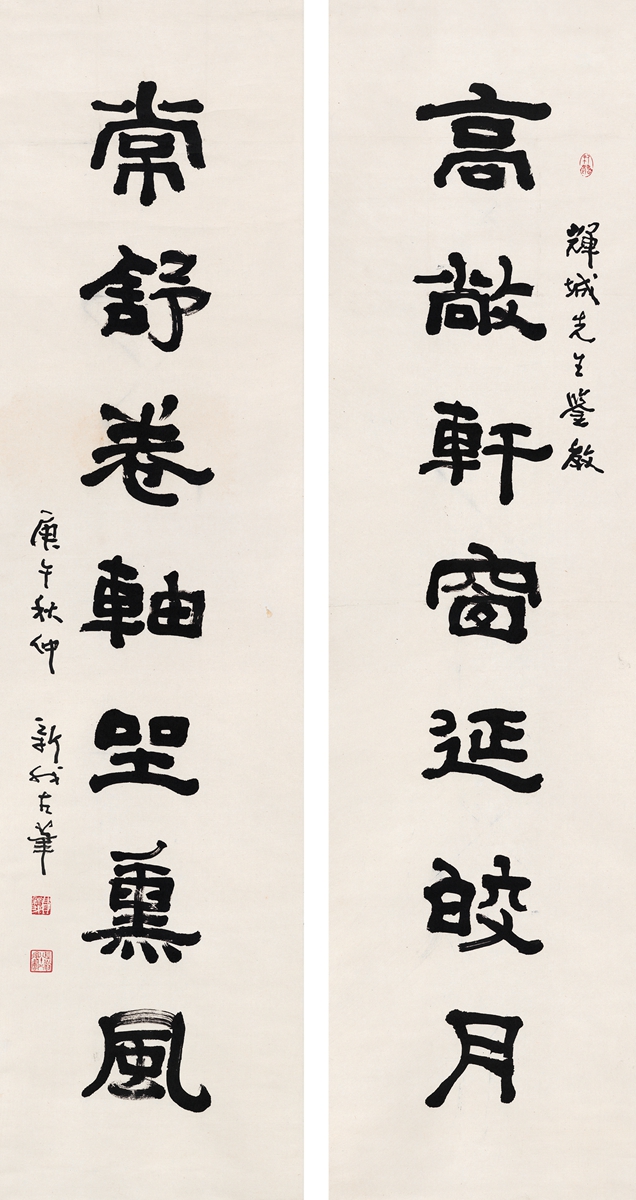 高敞軒窗延皎月
輝城先生鑒教
常舒卷軸坐熏風
庚午秋仲 新我左筆